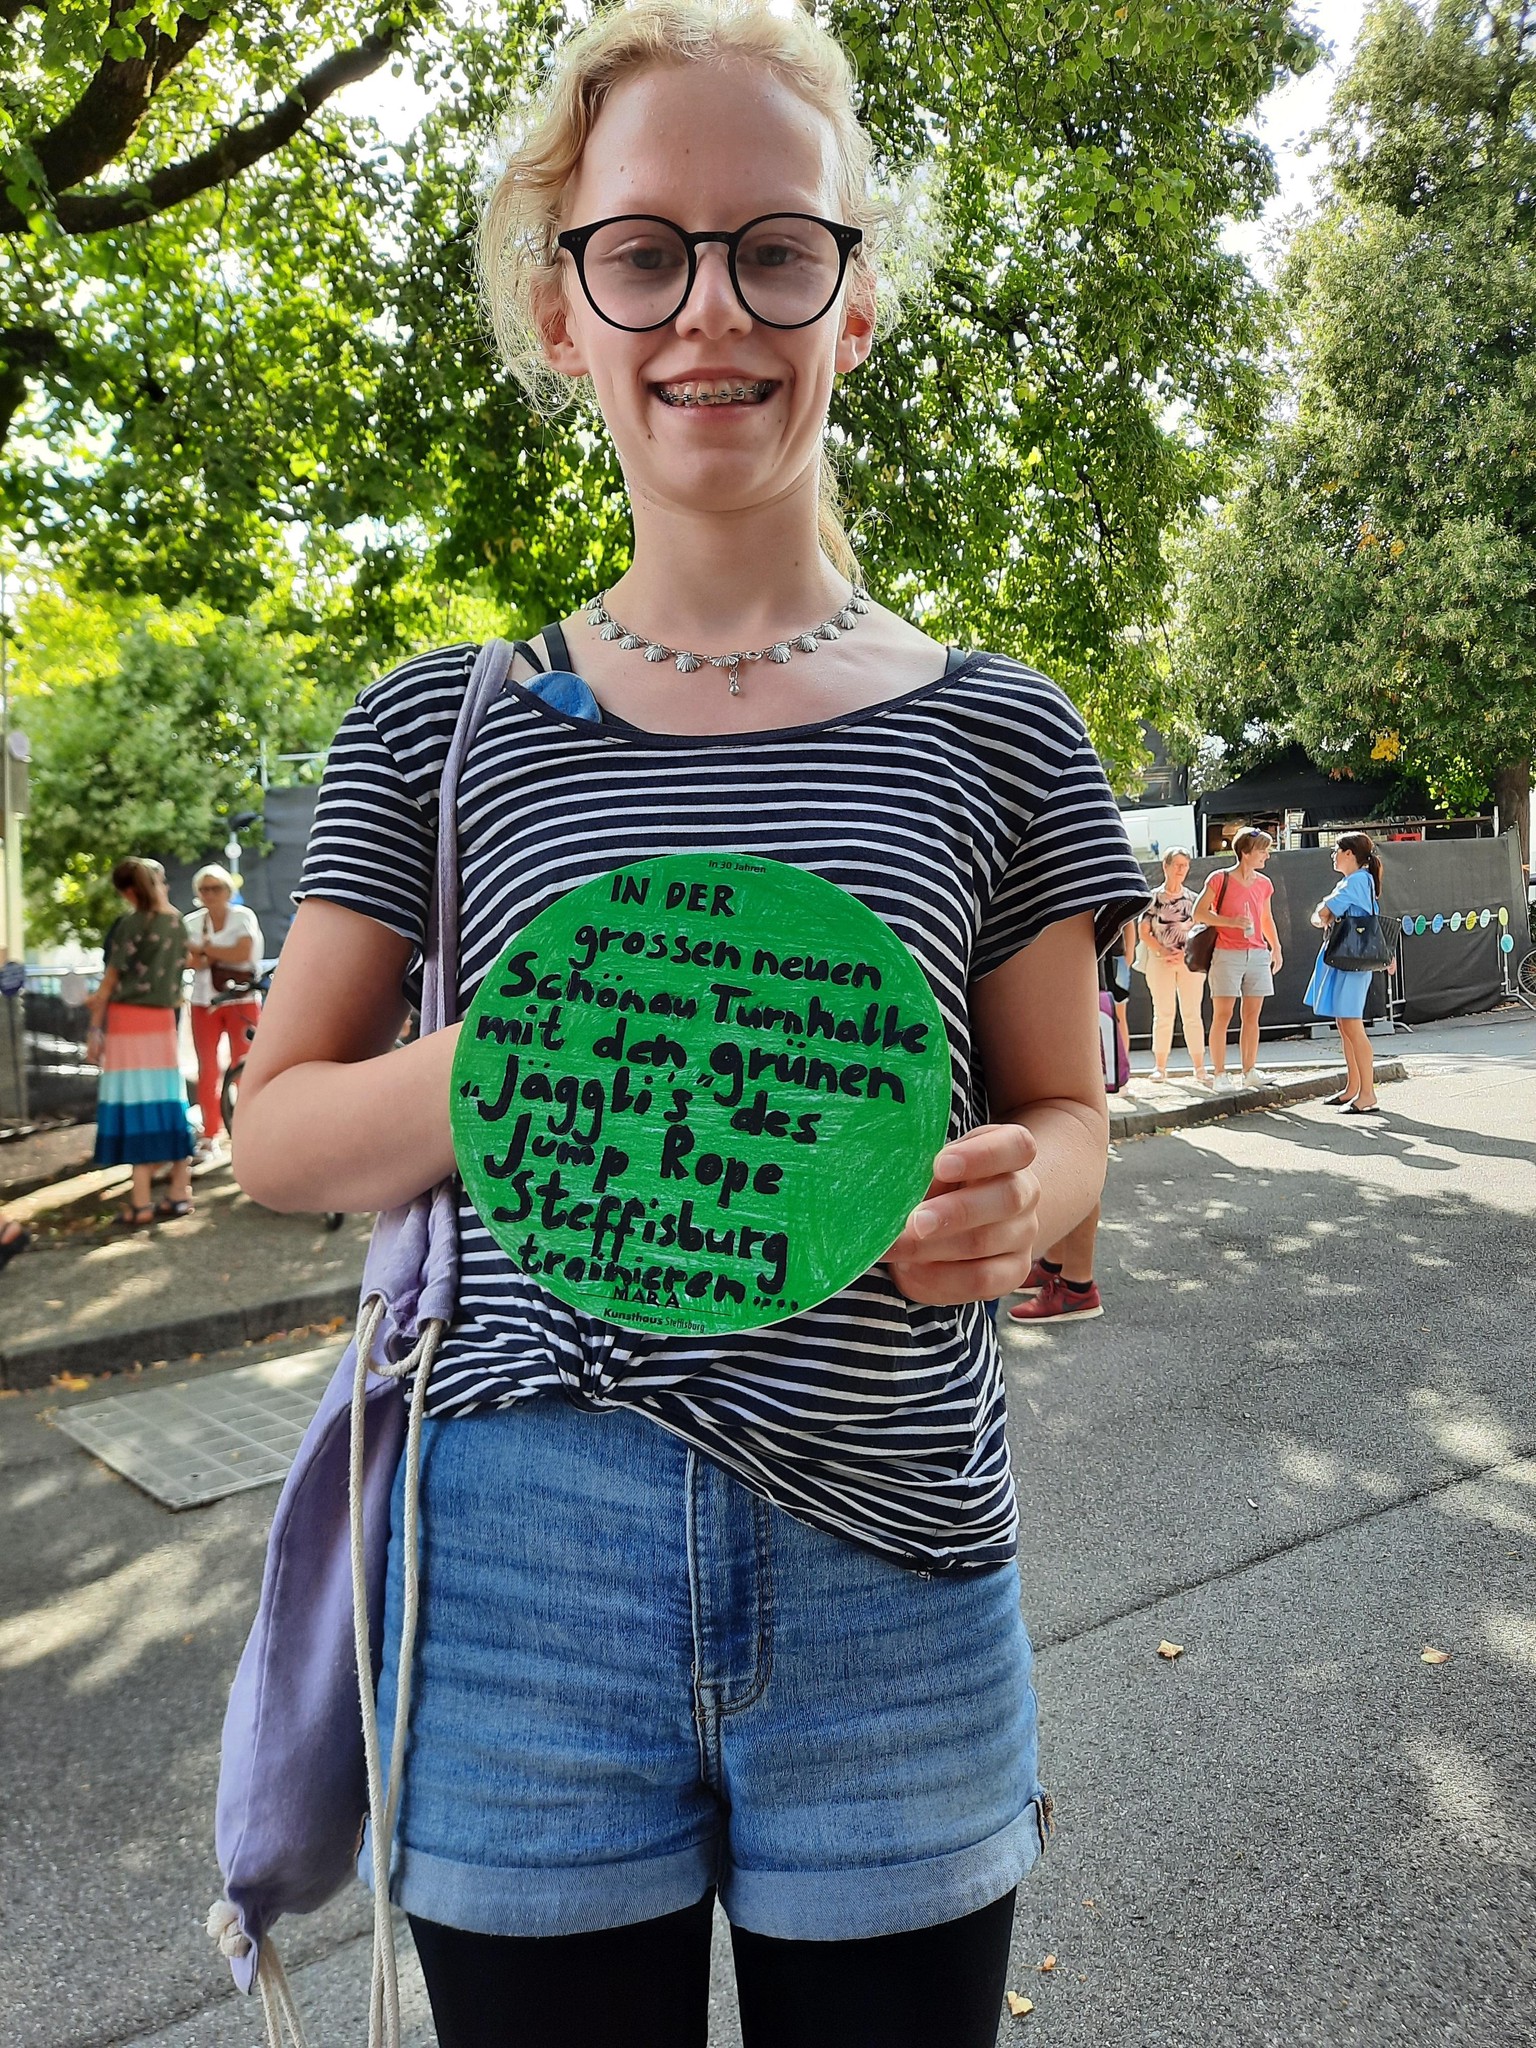 In 30 Jahren
IN DER
grossen neuen
Schönau Turnhalle
mit den grünen
„Jäggli's" des
Jump Rope
Steffisburg
trainieren....
MARA
Kunsthaus Steffisburg